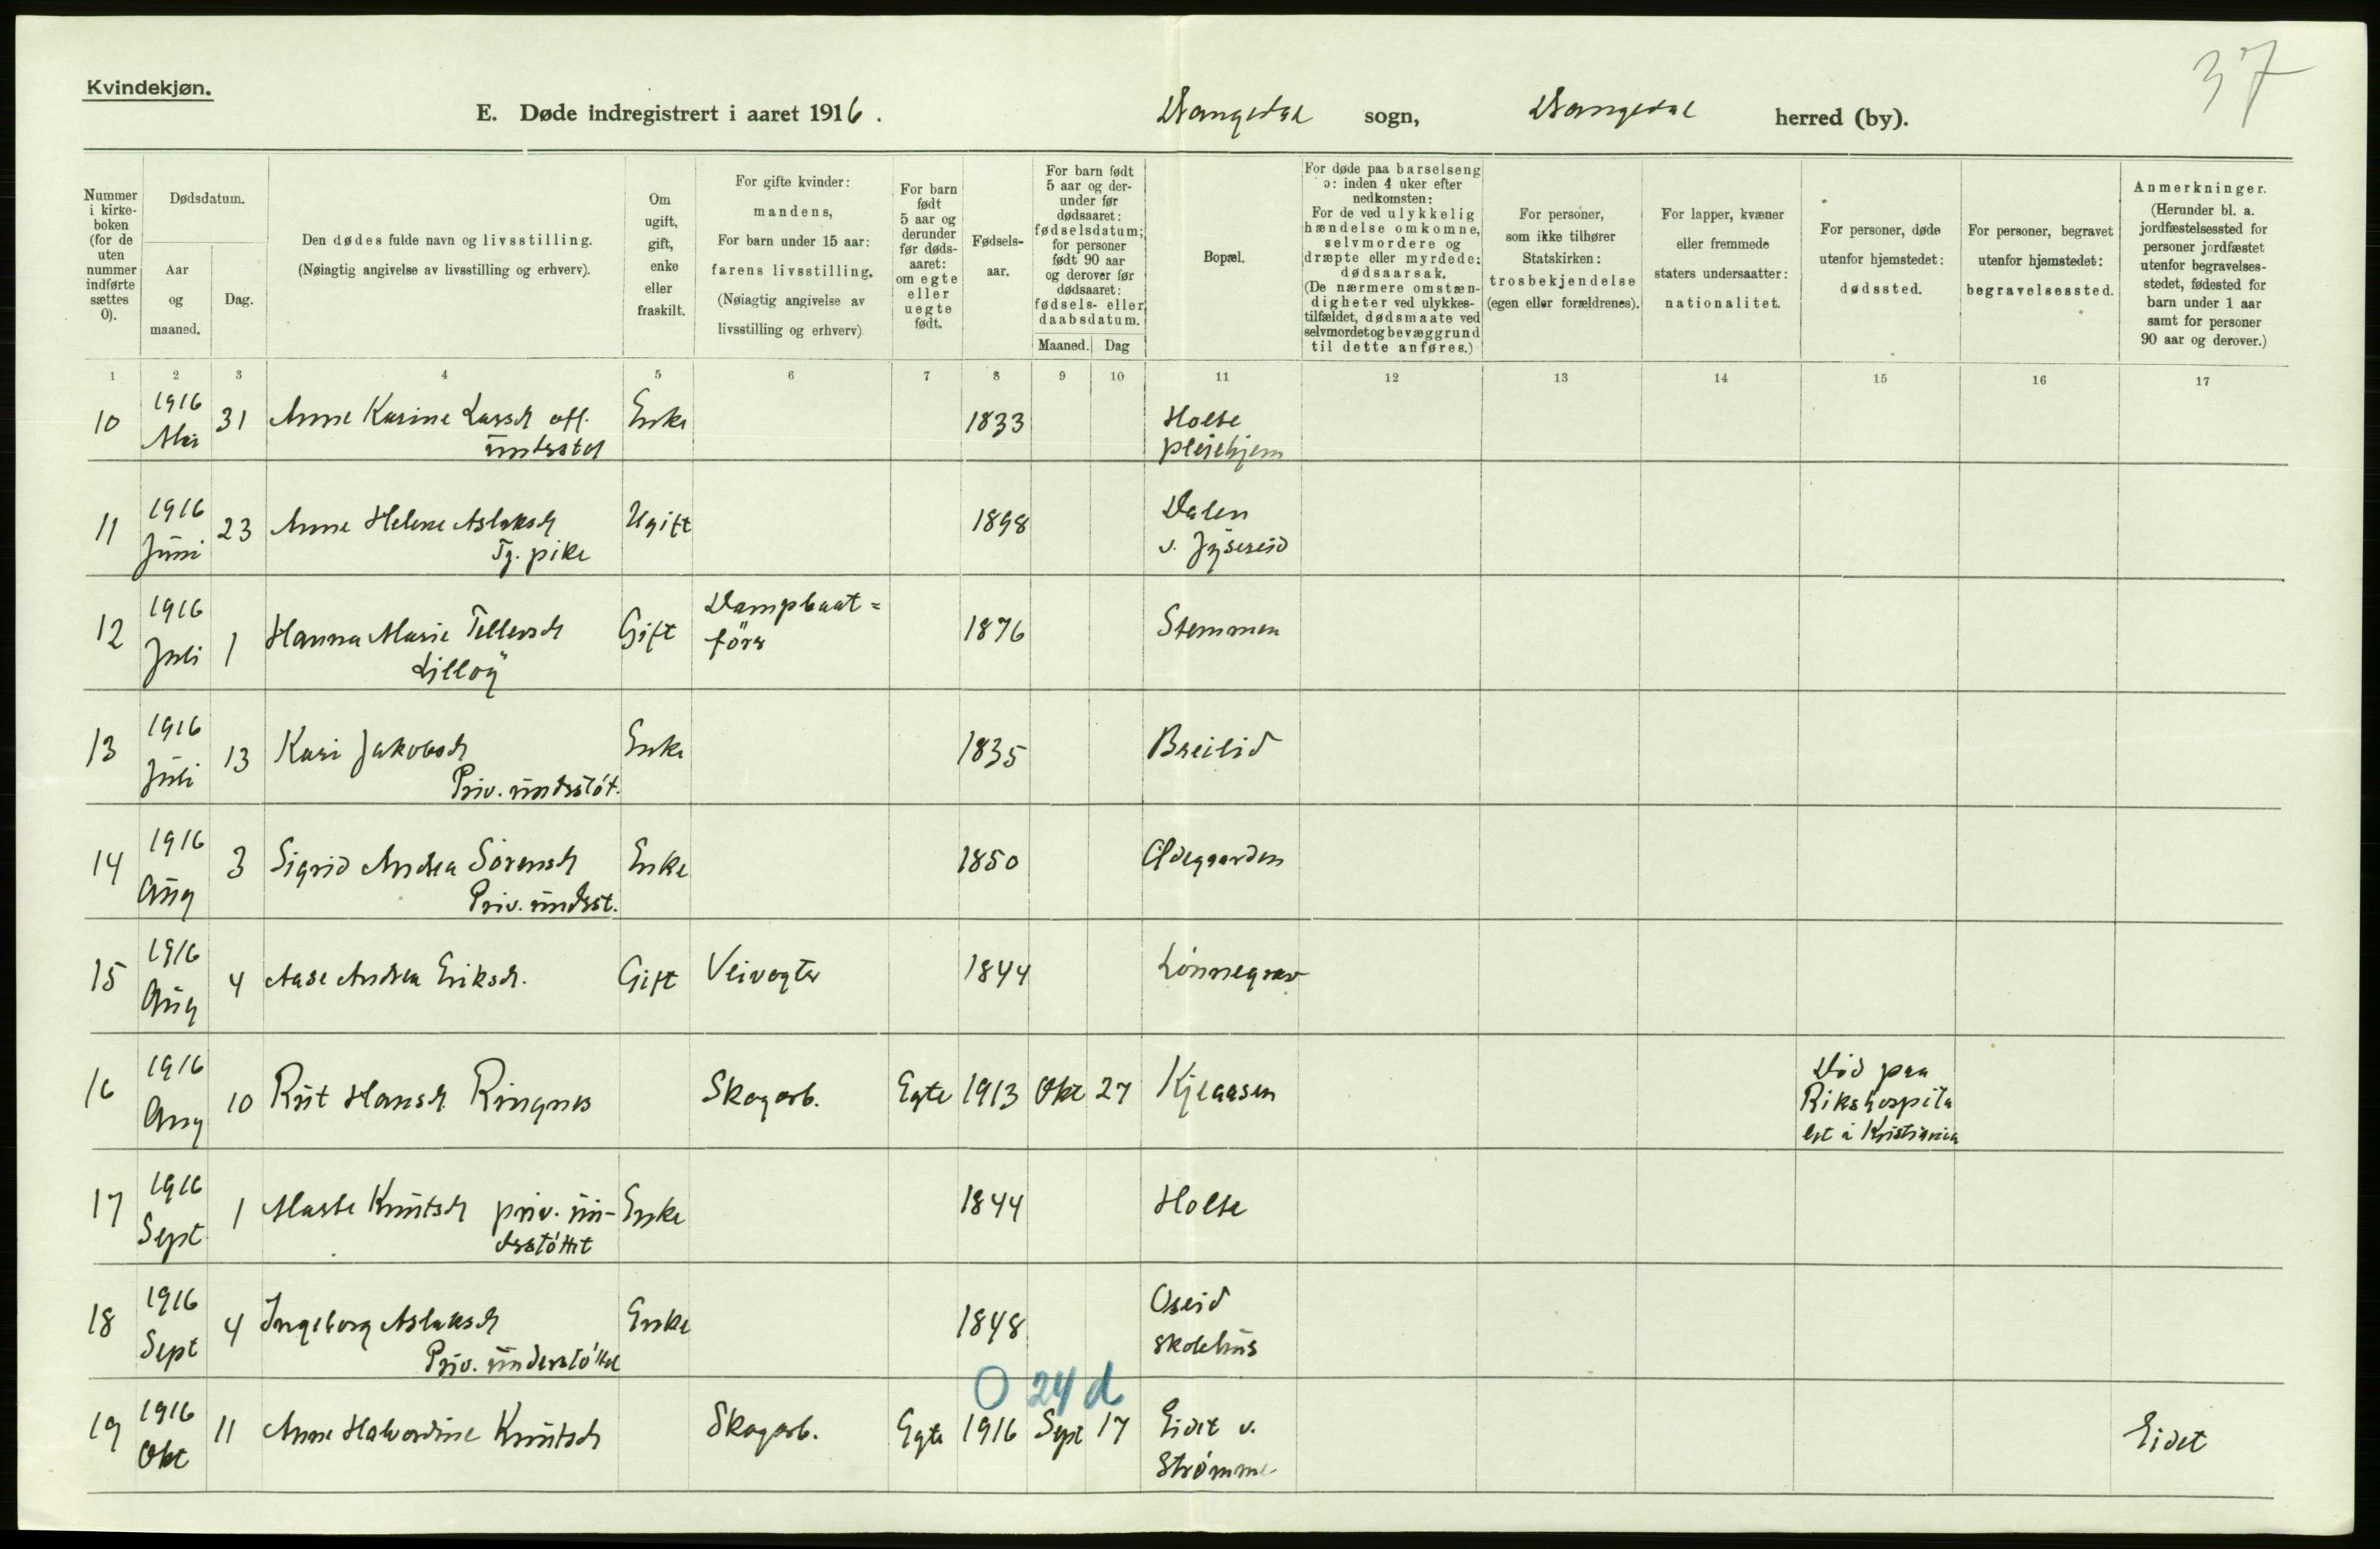 Kvindekjøn.
37
E. Døde indregistrert i aaret 1916. Drangedal sogn, Drangedal herred (by).
Nummer i kirke- boken (for de uten nummer indførte sættes 0).
Dødsdatum.
Aar og maaned.
Dag.
Den dødes fulde navn og livsstilling.
(Nøiagtig angivelse av livsstilling og erhverv).
Om ugift, gift, enke eller fraskilt.
For gifte kvinder: mandens,
For barn under 15 aar: farens livsstilling.
(Nøiagtig angivelse av livsstilling og erhverv)
For barn født 5 aar og derunder før døds- aaret: om egte eller uegte født.
Fødsels- aar.
For barn født 5 aar og der- under før dødsaaret: fødselsdatum; for personer født 90 aar og derover før dødsaaret: fødsels- eller daabsdatum.
Maaned. Dag
Bopæl.
For døde paa barselseng ɔ: inden 4 uker efter nedkomsten:
For de ved ulykkelig hændelse omkomne, selvmordere og dræpte eller myrdede: dødsaarsak.
(De nærmere omstæn- digheter ved ulykkes- tilfældet, dødsmaate ved selvmord et og bevæggrund til dette anføres.)
For personer, som ikke tilhører Statskirken: trosbekjendelse (egen eller forældrenes).
For lapper, kvæner eller fremmede staters undersaatter: nationalitet.
For personer, døde utenfor hjemstedet: dødssted.
For personer, begravet utenfor hjemstedet: begravelsessted.
Anmerkninger.
(Herunder bl. a. jordfæstelsessted for personer jordfæstet utenfor begravelses- stedet, fødested for barn under 1 aar samt for personer 90 aar og derover.)
1 2 3 4 5 6 7 8 9 10 11 12 13 14 15 16 17
10 1916 Mai 31 Anne Karine Larsd off. Enke 1833 Holte
understd pleiehjem
11 1916 Juni 23 Anne Helene Aslaksd Ugift 1898 Dalen
Tj. pike v.
12 1916 Juli 1 Hanna Marie Tellevsd Gift Dampbaat= 1876 Stemmen
Lilloy förer
13 1916 Juli 13 Kari Jakobsd Enke 1835 Breilid
Priv. understöt.
14 1916 Aug 3 Sigrid Andrea Sörensd Enke 1850 Ødegaarden
Priv. underst.
15 1916 Aug 4 Aase Andrea Eriksd. Gift Veivogter 1844 Lönnegrav
16 1916 Aug 10 Rut Hansd Ringnes Skogarb. Egte 1913 Okt 27 Kjeaasen Död paa
Rikshospita
let i Kristiania
17 1916 Sept 1 Marte Knutsd priv. un- Enke 1844 Holte
derstöttet
18 1916 Sept 4 Ingeborg Aslaksd Enke 1848 Oseid
Priv. understöttet skolehus
0 24 d
19 1916 Okt 11 Anne Halvordine Knutsd Skogarb. Egte 1916 Sept 17 Eidet v. Eidet
Strömme